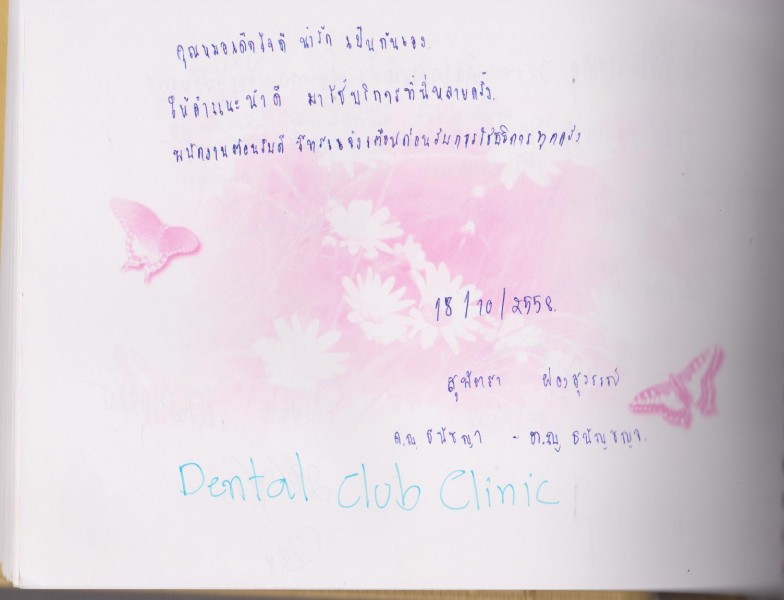 คุณหมอเด็กใจดี น่ารัก เป็นกันเอง
ให้คำแนะนำดี มาใช้บริการที่นี่หลายครั้ง.
พนักงานต้อนรับดี มีโทรแจ้งเตือนก่อนรับการใช้บริการทุกครั้ง
18/10/2558.
สุพัตรา ผ่องสุวรรณ์
ด.ญ ธนัชญา - ด.ญ ธนัญชญา.
Dental Club Clinic